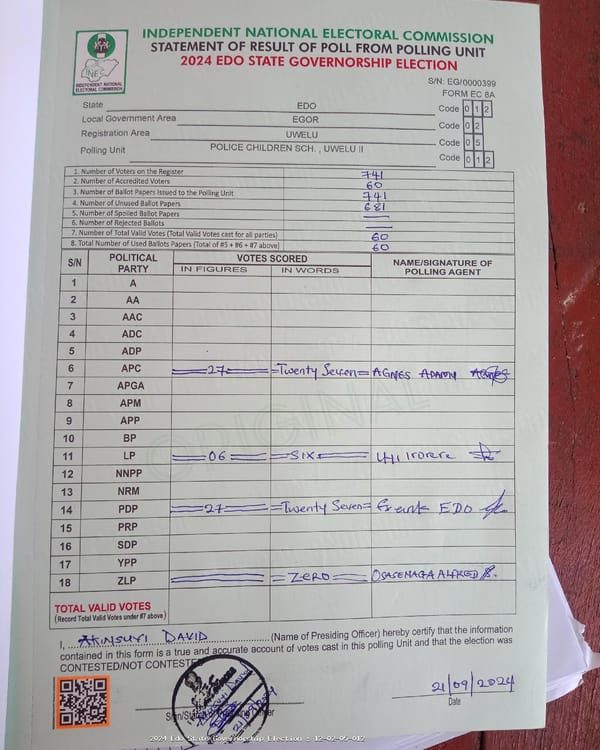 INDEPENDENT NATIONAL ELECTORAL COMMISSION
STATEMENT OF RESULT OF POLL FROM POLLING UNIT
2024 EDO STATE GOVERNORSHIP ELECTION
INEC
INDEPENDENT NATIONAL
ELECTORAL COMMISSION
S/N: EG/0000399
FORM EC 8A
State EDO Code 0 1 2
Local Government Area EGOR Code 0 2
Registration Area UWELU Code 0 5
Polling Unit POLICE CHILDREN SCH. , UWELU II Code 0 1 2
1. Number of Voters on the Register 741
2. Number of Accredited Voters 60
3. Number of Ballot Papers Issued to the Polling Unit 741
4. Number of Unused Ballot Papers 681
5. Number of Spoiled Ballot Papers
6. Number of Rejected Ballots
7. Number of Total Valid Votes (Total Valid Votes cast for all parties) 60
8. Total Number of Used Ballots Papers (Total of #5 + #6 + #7 above) 60
S/N POLITICAL PARTY VOTES SCORED NAME/SIGNATURE OF POLLING AGENT
IN FIGURES IN WORDS
1 A
2 AA
3 AAC
4 ADC
5 ADP
6 APC 27 Twenty Seven AGNES
7 APGA
8 APM
9 APP
10 BP
11 LP 06 SIX
12 NNPP
13 NRM
14 PDP 27 Twenty Seven EDO
15 PRP
16 SDP
17 YPP
18 ZLP ZERO OSASENAGA ALFRED
ORIGINAL
TOTAL VALID VOTES
(Record Total Valid Votes under #7 above)
I, AKINSUYI DAVID (Name of Presiding Officer) hereby certify that the information
contained in this form is a true and accurate account of votes cast in this polling Unit and that the election was
CONTESTED/NOT CONTESTED
21/09/2024
Date
2024 Edo State Governorship Election : 12-02-05-012